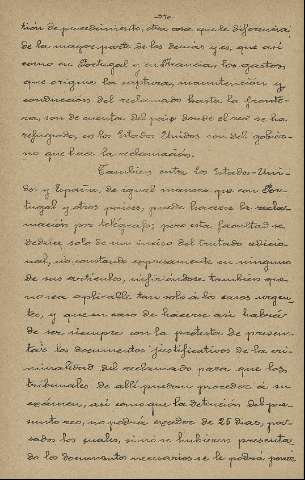 tión de procedimiento, otra cosa que le diferencia
de la mayor parte de los demás y es, que así
como en Portugal y en Francia, los gastos
que origina la captura, manutención y
conducción del reclamado hasta la fronte-
ra, son de cuenta del país donde el reo se ha
refugiado, en los Estados Unidos son del gobier-
no que hace la reclamación.
Tambien entre los Estados-Uni-
dos y España, de igual manera que con Por-
tugal y otros países, puede hacerse la recla-
mación por telégrafo; pero esta facultad se
deduce solo de un inciso del tratado adicio-
nal, no constando expresamente en ninguno
de sus artículos, infiriéndose tambien que
no sea aplicable tan solo á los casos urgen-
tes, y que en caso de hacerse así habrá
de ser siempre con la protesta de presen-
tar los documentos justificativos de la cri-
minalidad del reclamado para que los
tribunales de allí puedan proceder á su
exámen, así como que la detención del pre-
sunto reo, no podrá exceder de 25 dias, pa-
sados los cuales, si no se hubieran presenta-
do los documentos necesarios se le podrá poner